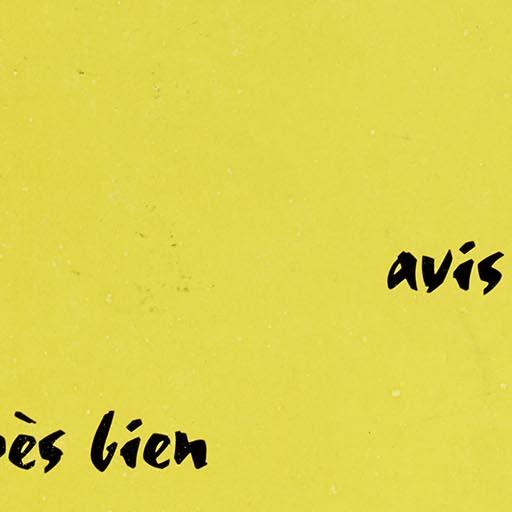 avis
bien